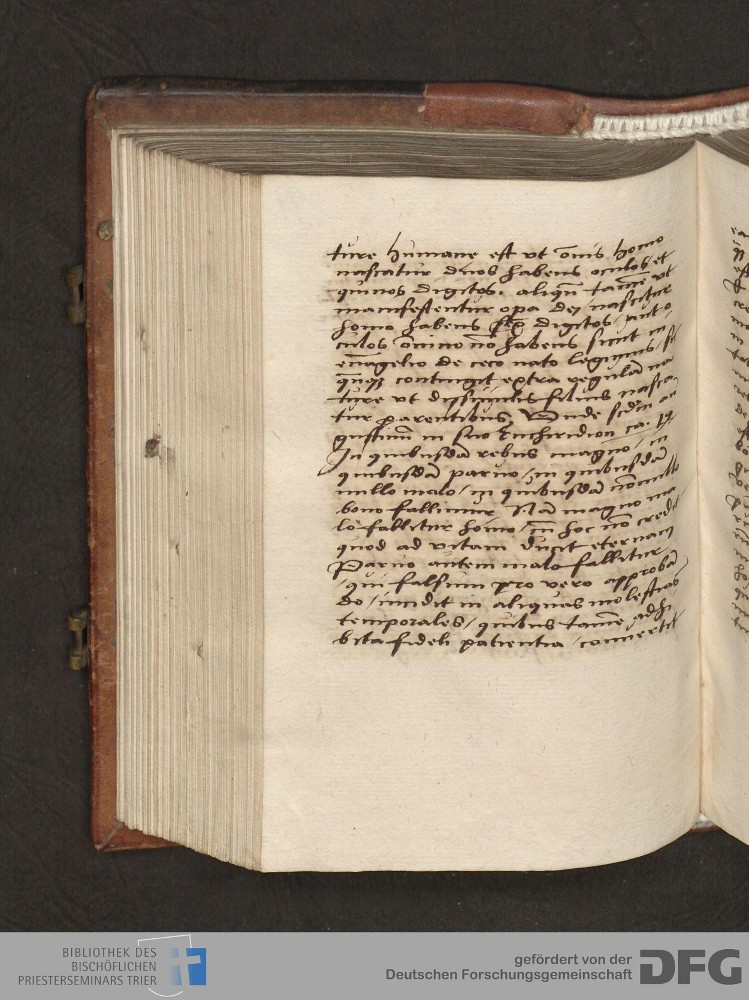 ture humane est ut o͞nis homo
nascatur duos habens oculos et
quinos digitos. aliqn͞ tame͞ ut
manifestentur opa dei nascitur
homo habens sex digitos / aut o
culos o͞nino no͞ habens sicut in
eua͞gelio de ceco nato legimus / sic
contingit extra regula͞ na
ture ut dissimilis filius nasca
tur parentibus. Unde scd͞m au
gustinu͞ in suo Enchiridion ca.
In quibusda͞ rebus magno / in
quibusda͞ paruo / in quibusda͞
nullo malo / in quibusda͞ no͞nullo
bono fallimur Na͞ magno ma
lo fallitur homo / cu͞ hoc no͞ credit
quod ad vitam ducit eternam
Paruo autem malo fallitur
/ qui falsum pro vero approba͞
do / incidit in aliquas molestias
temporales / quibus tame͞ adhi
bita fideli patientia / conuertit
BIBLIOTHEK DES
BISCHÖFLICHEN
PRIESTERSEMINARS TRIER
gefördert von der
Deutschen Forschungsgemeinschaft
DFG